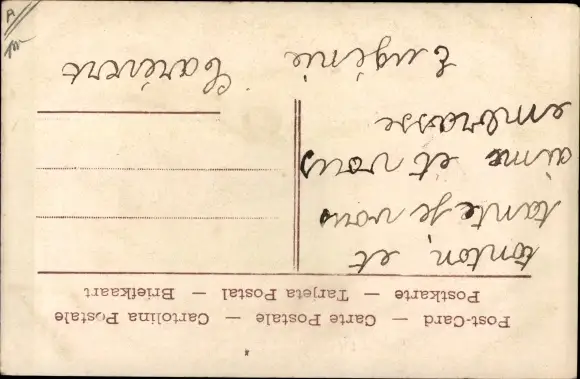 Post-Card — Carte Postale — Cartolina Postale
Postkarte — Tarjeta Postal — Briefkaart
tonton, et
tante je vous
aime et vous
embrasse
Eugénie
Carévert